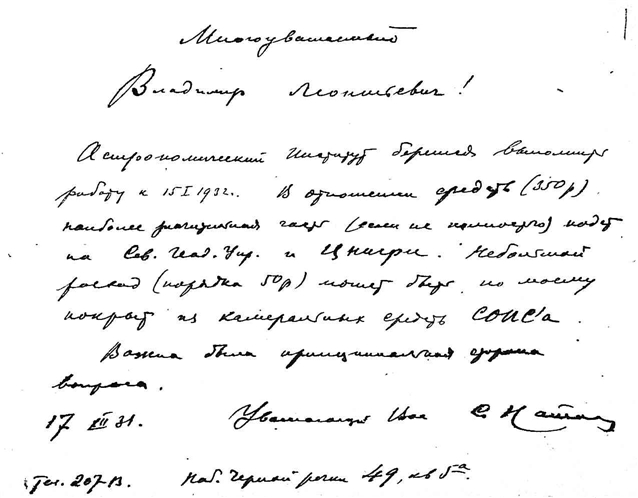 Многоуважаемый
Владимир Леонтьевич!
Астрономический Институт берется выполнить
работу к 15 I 1932 г. В отношении средств (350 р)
наиболее значительная часть (если не полностью) падет
на Сев. Геод. Упр. и Цнигри. Небольшой
расход (порядка 50 р) может быть по моему
покрыт из камеральных средств СОПС'а.
Важна была принципиальная сторона
вопроса.
17 XII 31. Уважающий Вас С.
Тел. 207-13. Наб. Черной речки 49, кв 5а.